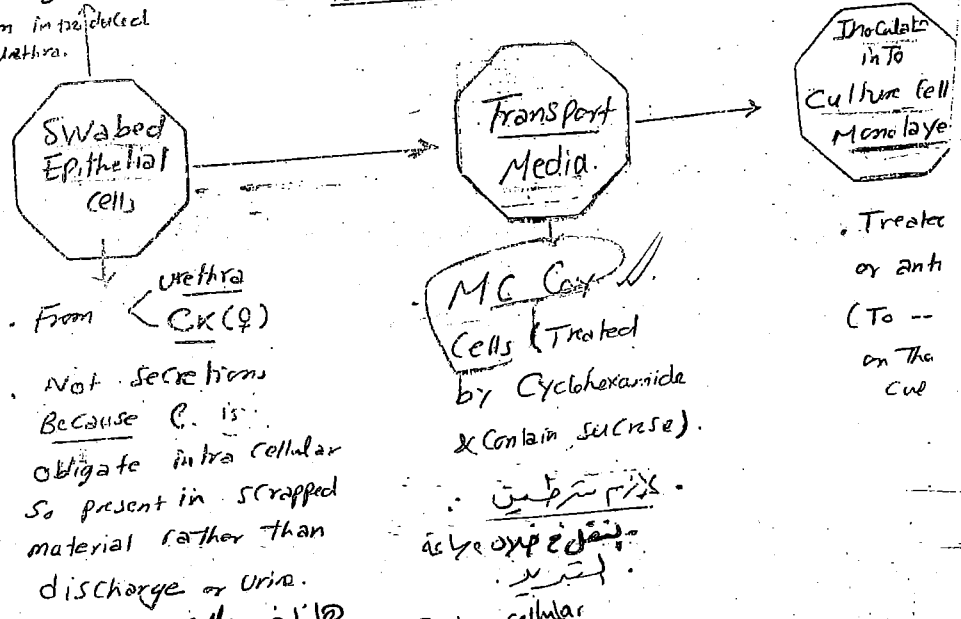 n introduced
urethra.
Swabed
Epithelial
Cells
Transport
Media.
Inoculat
in To
Culture Cell
Monolaye
. From
urethra
CX (♀)
. Not Secretions
Because C. is
obligate intra Cellular
So present in scrapped
material rather than
discharge or Urine.
. MC Coy
Cells (Treated
by Cyclohexamide
& Contain sucrose).
. لازم شرطين .
. التبريد .
cellular
. Treated
or anti
(To --
on The